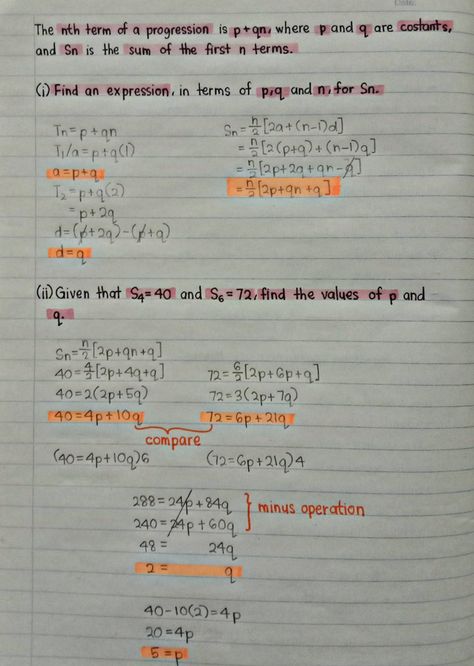 Date:
The nth term of a progression is p+qn, where p and q are costants,
and Sn is the sum of the first n terms.
(i) Find an expression, in terms of p,q and n, for Sn.
Tn = p + qn
T1/a = p + q(1)
a = p + q
T2 = p + q(2)
= p + 2q
d = (p + 2q) - (p + q)
d = q
Sn = n/2 [2a + (n-1)d]
= n/2 [2(p+q) + (n-1)q]
= n/2 [2p + 2q + qn - q]
= n/2 [2p + qn + q]
(ii) Given that S4 = 40 and S6 = 72, find the values of p and
q.
Sn = n/2 [2p + qn + q]
40 = 4/2 [2p + 4q + q]
40 = 2(2p + 5q)
40 = 4p + 10q
72 = 6/2 [2p + 6p + q]
72 = 3(2p + 7q)
72 = 6p + 21q
compare
(40 = 4p + 10q)6
(72 = 6p + 21q)4
288 = 24p + 84q
240 = 24p + 60q
minus operation
48 = 24q
2 = q
40 - 10(2) = 4p
20 = 4p
5 = p